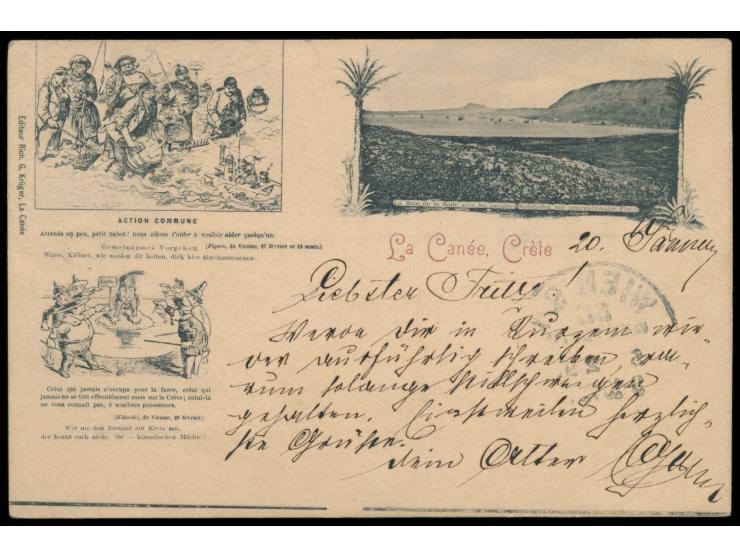 Editeur Rich. G. Krüger, La Canée
ACTION COMMUNE
Attends un peu, petit nabot! nous allons t'aider à vouloir aider quelqu'un.
Gemeinsames Vorgehen. (Figaro, de Vienne, 27 février et 13 mars.)
Warte, Kleiner, wir werden dir helfen, dich hier hineinzumischen!
Kreta
Celui qui jamais n'occupa pour la farce, celui qui
jamais ne se tint effrontément assis sur la Crète; celui-là
ne vous connaît pas, ô sombres puissances.
(Kikeriki, de Vienne, 28 février.)
Wer nie den Zustand auf Kreta sah,
der kennt euch nicht, ihr — himmlischen Mächte!
La Baie de la Sude avec les escadres
La Canée, Crète
20. Januar
WIEN
Liebster Fritz!
Werde dir in Kurzem wie-
der ausführlich schreiben wa-
rum solange stillschweigen
gehalten. Einstweilen herzlich-
ste Grüße.
dein Alter